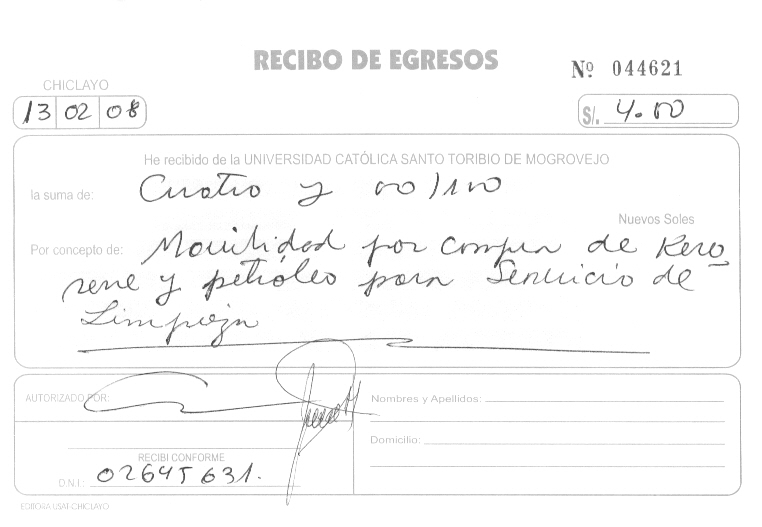 RECIBO DE EGRESOS
Nº 044621
CHICLAYO
13 02 08
S/. 4.00
He recibido de la UNIVERSIDAD CATÓLICA SANTO TORIBIO DE MOGROVEJO
la suma de: Cuatro y 00/100
Nuevos Soles
Por concepto de: Movilidad por compra de Kero
sene y petróleo para Servicio de
Limpieza
AUTORIZADO POR:
Nombres y Apellidos:
Domicilio:
RECIBI CONFORME
D.N.I: 02645631.
EDITORA USAT CHICLAYO